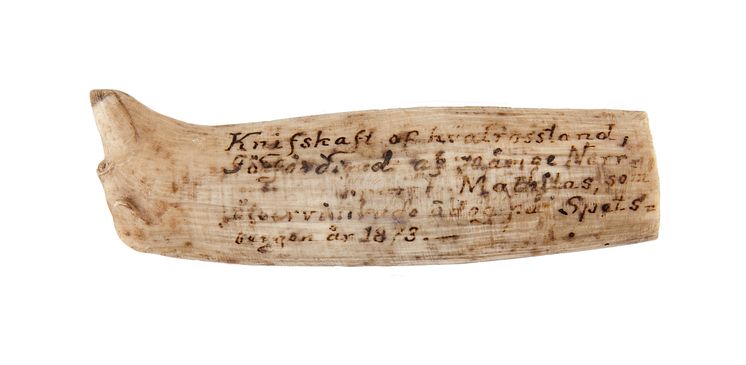 Knifskaft af hvalrosstand,
af Norr-
Mathilas, som
öfvervintrade på Spets-
bergen år 1873.—